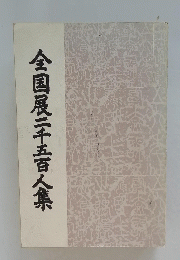 全国展二千五百人集